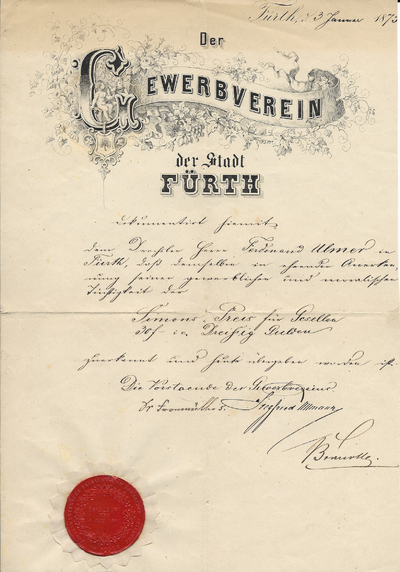 Fürth, d. 3 Januar 1873
Der
GEWERBVEREIN
der Stadt
FÜRTH
dokumentirt hiemit
dem Drechsler Herr Ferdinand Ulmer in
Fürth, daß demselben in ehrender Anerken-
nung seiner gewerblichen und moralischen
Tüchtigkeit der
Simons-Preis für Gesellen
30f - i.e. Dreißig Gulden
zuerkannt und heute übergeben worden ist.
Die Vorstaende des Gewerbvereins
Dr Fronmüller s. Siegfried Ullmann